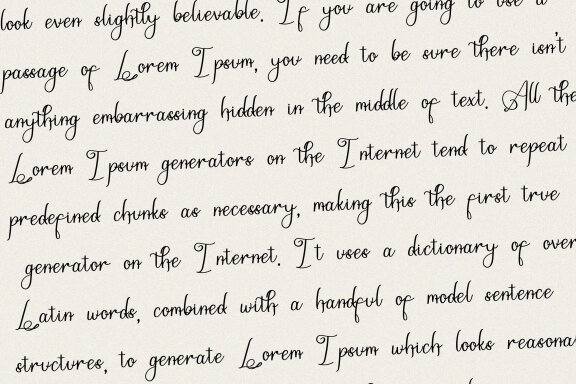 look even slightly believable. If you are going to use a
passage of Lorem Ipsum, you need to be sure there isn't
anything embarrassing hidden in the middle of text. All the
Lorem Ipsum generators on the Internet tend to repeat
predefined chunks as necessary, making this the first true
generator on the Internet. It uses a dictionary of over
Latin words, combined with a handful of model sentence
structures, to generate Lorem Ipsum which looks reasona